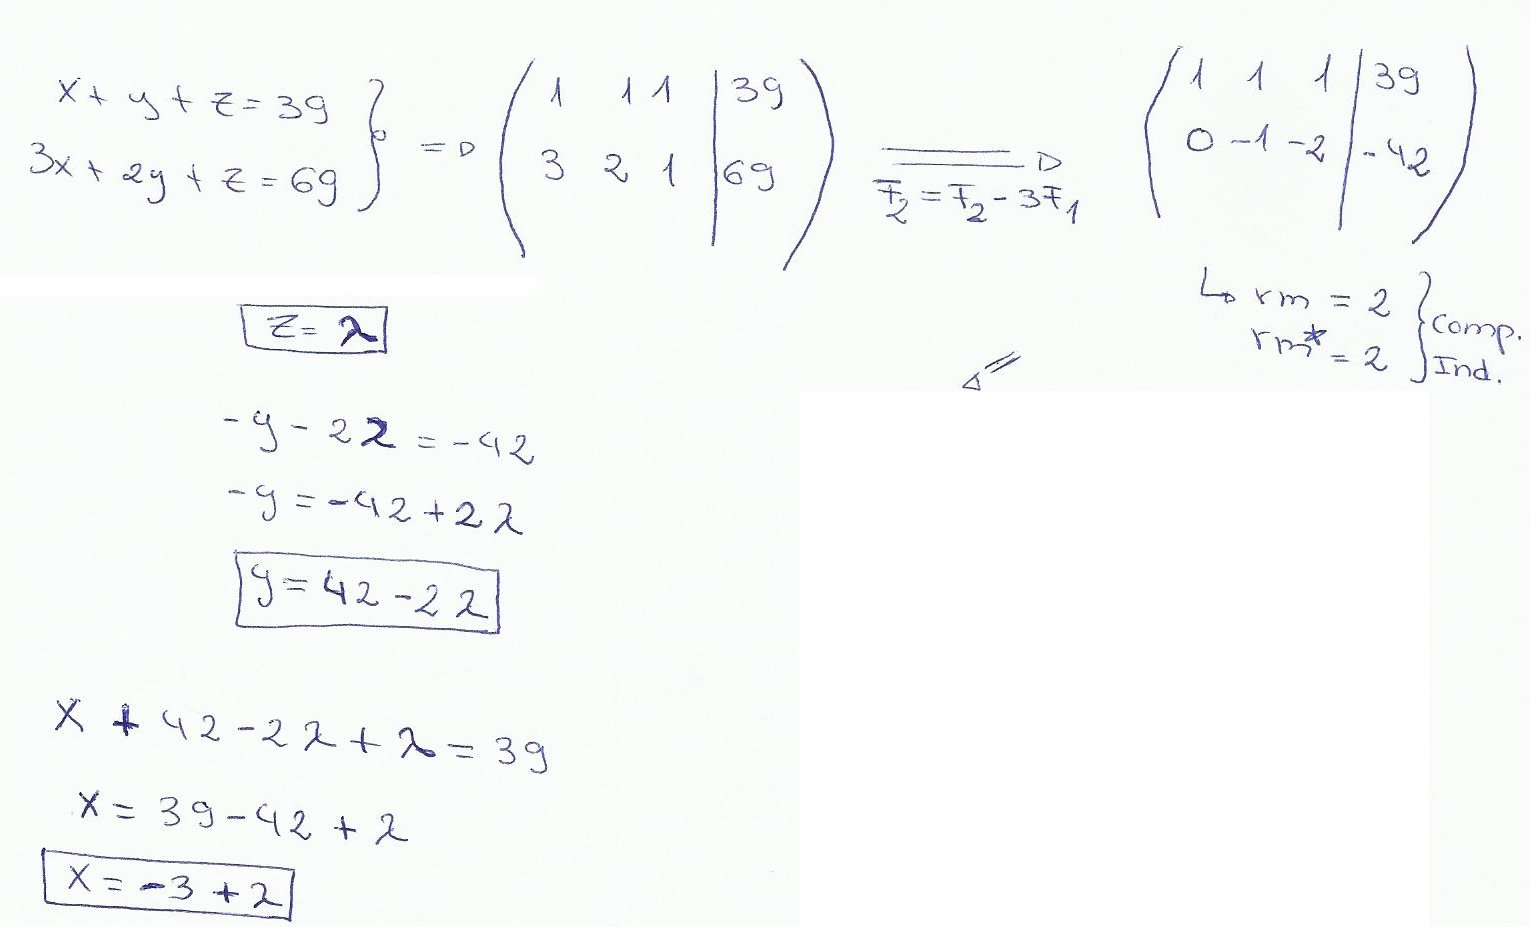 x + y + z = 39 } => ( 1 1 1 | 39 )
3x + 2y + z = 69 } ( 3 2 1 | 69 )
F₂ = F₂ - 3F₁
( 1 1 1 | 39 )
( 0 -1 -2 | -42 )
↳ rm = 2 } Comp.
rm* = 2 } Ind.
z = λ
-y - 2λ = -42
-y = -42 + 2λ
y = 42 - 2λ
x + 42 - 2λ + λ = 39
x = 39 - 42 + λ
x = -3 + λ